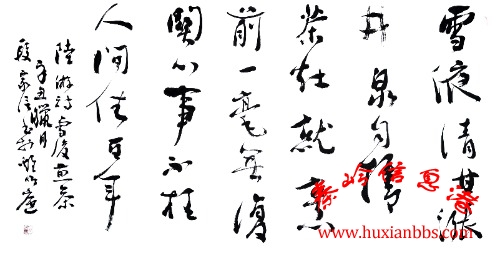 雪液清甘漲
井泉自攜
茶灶就烹
煎一毫無復
關心事不枉
人間住百年
陸游詩雪後煎茶
辛丑臘月
秦岭信息港
www.huxianbbs.com